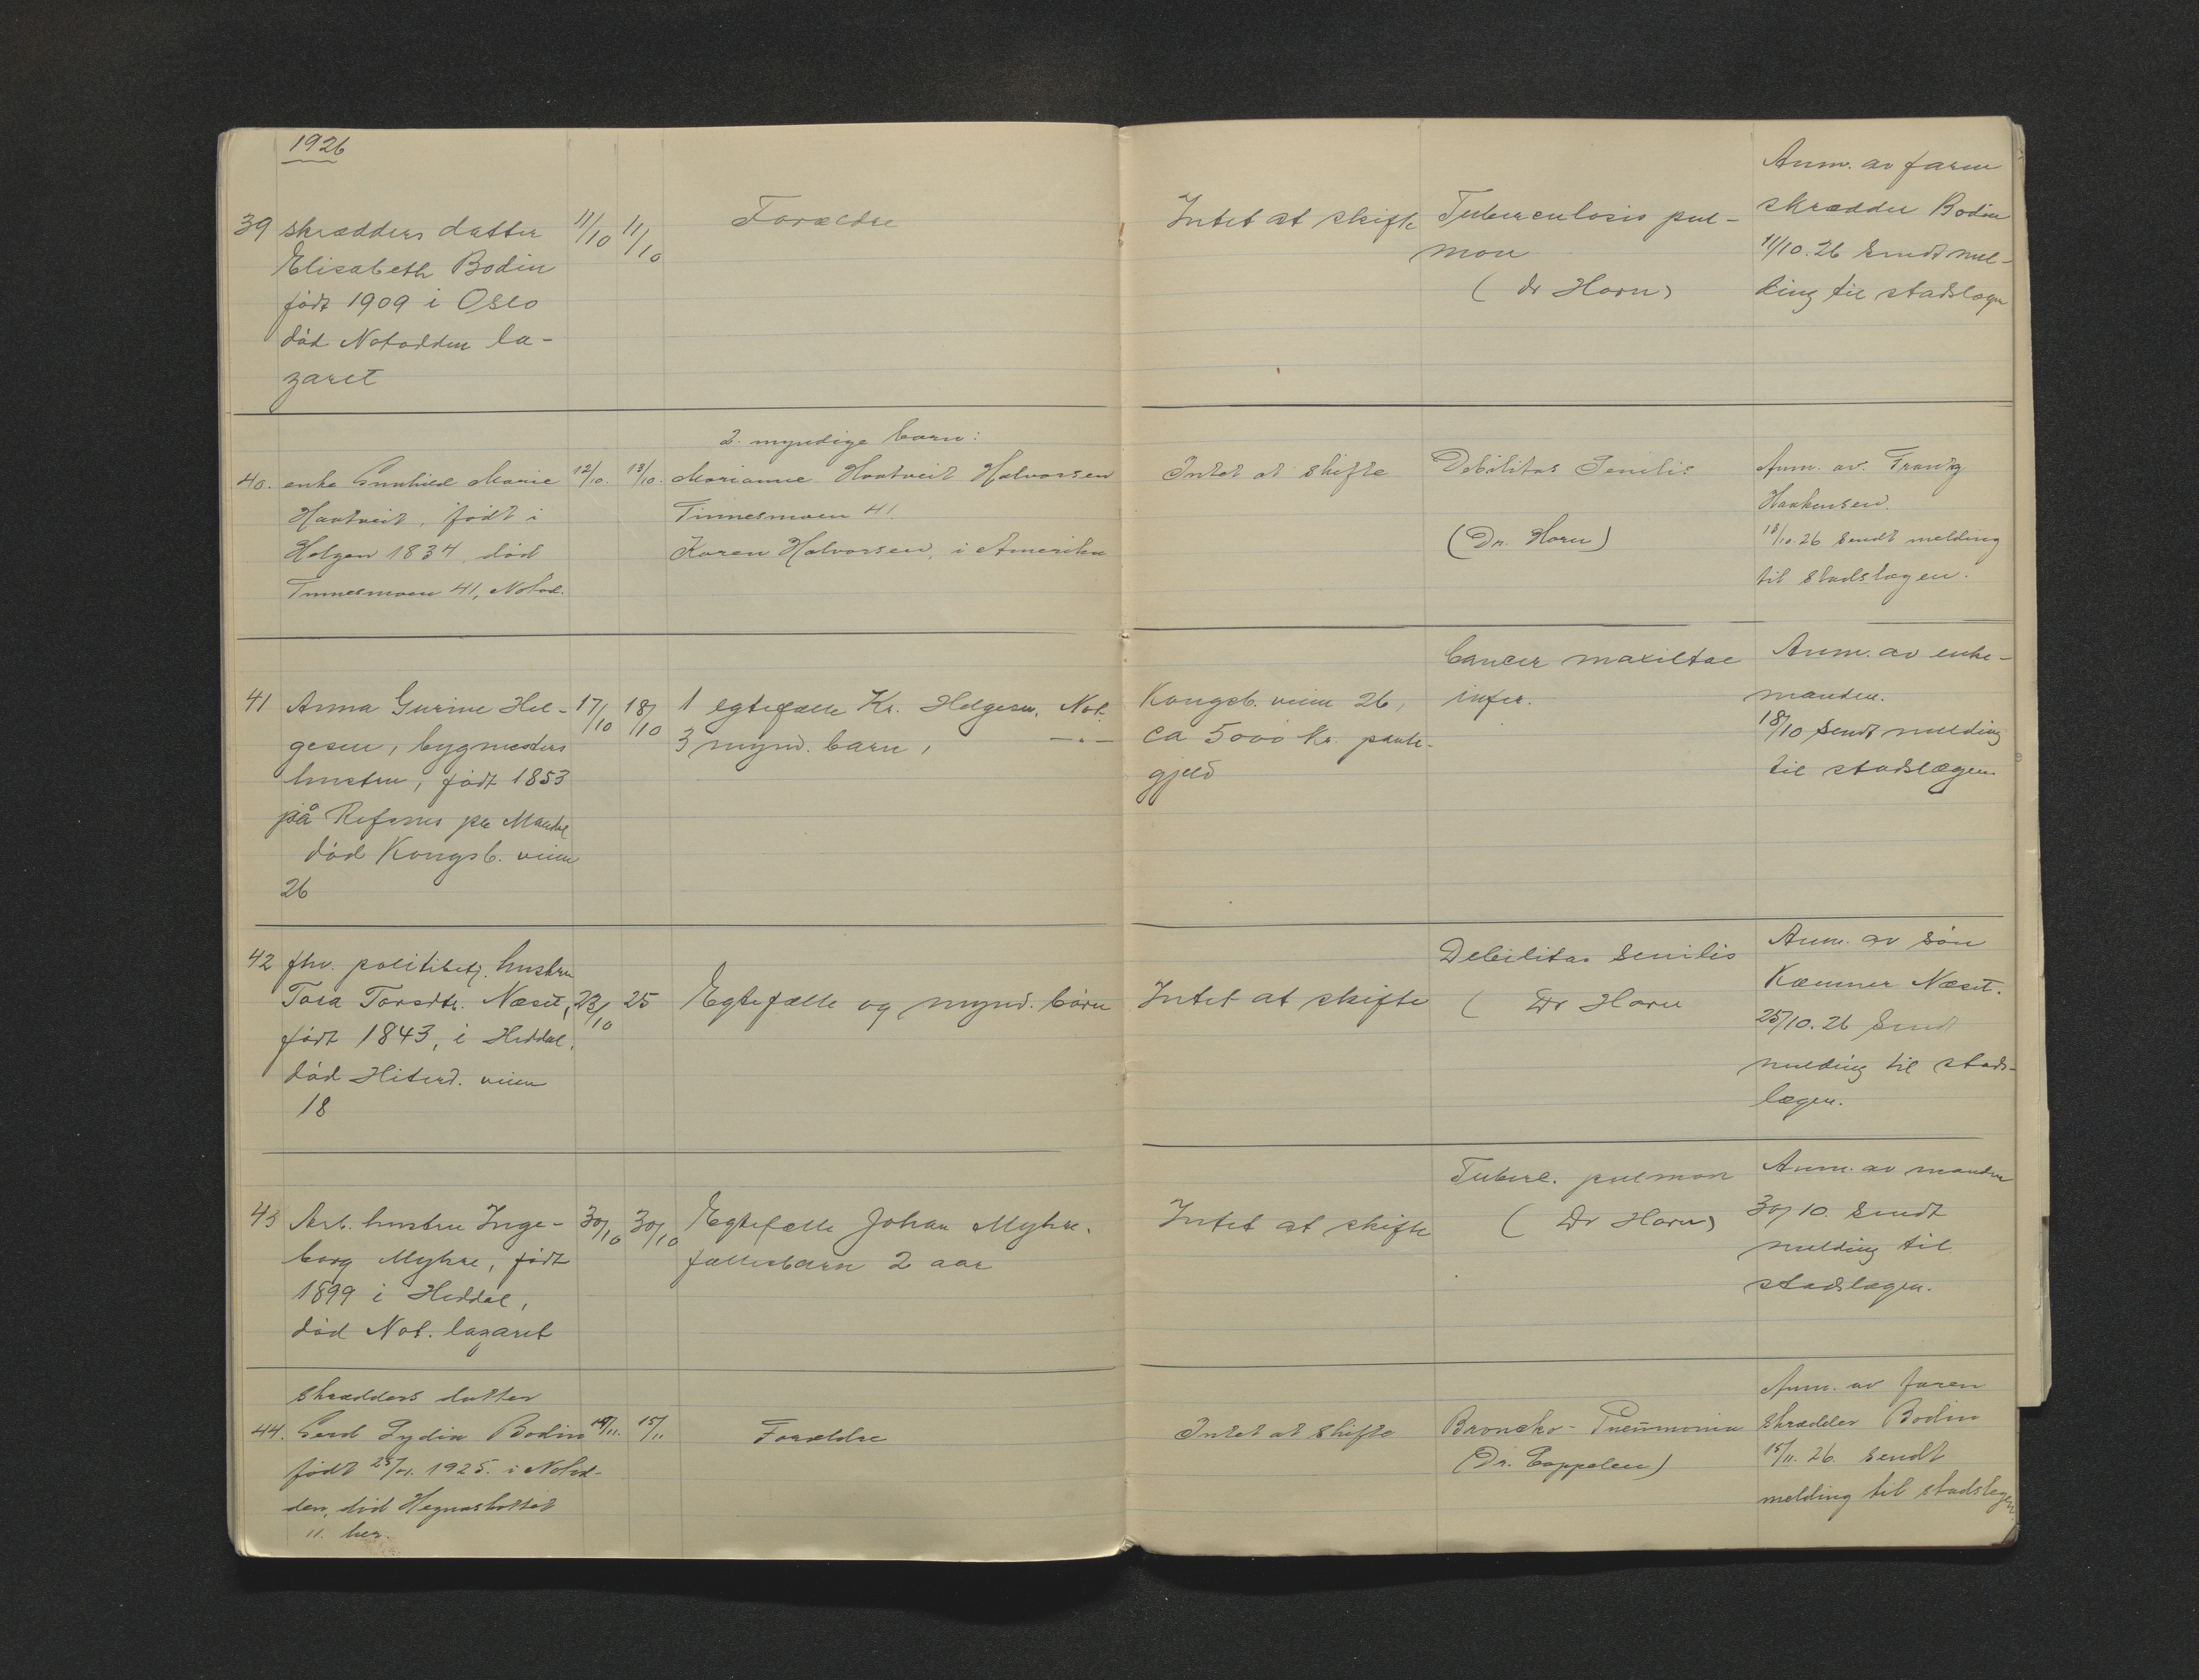 1926
39 skrædders datter 11/10 11/10 Forældre
Elisabeth Bodin
født 1909 i Oslo
död Notodden la-
zaret
Intet at skifte Tuberculosis pul-
mon
(dr Horn)
Anm. av faren
skrædder Bodin
11/10. 26 Sendt mel-
ding til stadslægen
2 myndige barn:
40. enke Gunhild Marie 12/10. 13/10. Marianne Haatveit Halvorsen
Haatveit, født i Tinnesmoen 41.
Holgen 1834, död Karen Halvorsen, i Amerika
Tinnesmoen 41, Notod.
Intet at skifte Debilitas Senilis
(Dr. Horn)
Anm. av. Frantz
Haakensen.
13/10. 26 Sendt melding
til stadslægen.
41 Anna Gurine Hel- 17/10 18/10 1 egtefælle Kr. Helgesen, Not.
gesen, bygmesters 3 mynd. barn, —"—
hustru, født 1853
på Refsnes pr Mandal
död Kongsb. veien
26
Kongsb. veien 26,
ca 5000 kr. pante-
gjeld
Cancer maxillae
infer.
Anm. av enke-
manden.
18/10 Sendt melding
til stadslægen
42 fhv. politibetj. hustru
Tora Torsdtr. Næset, 23/10 25 Egtefælle og mynd. børn
født 1843, i Heddal,
död Hiterd. veien
18
Intet at skifte
Debilitas senilis
( Dr Horn
Anm. av sön
Kæmner Næset.
25/10. 26 Sendt
melding til stads-
lægen.
43 Arb. hustru Inge- 30/10 30/10 Egtefælle Johan Myhre.
borg Myhre, født fællesbarn 2 aar
1899 i Heddal,
död Not. lazaret
Intet at skifte
Tuberc. pulmon
( Dr Horn)
Anm. av manden
30/10. Sendt
melding til
stadslægen.
skrædders datter
44. Gerd Lydia Bodin 14/11. 15/11 Forældre
født 25/4. 1925. i Notod-
den, död Hegnaslottet
11. her.
Intet at skifte Broncho-Pneumonia
(Dr. Cappelen)
Anm. av faren
skrædder Bodin
15/11. 26. sendt
melding til stadslegen.